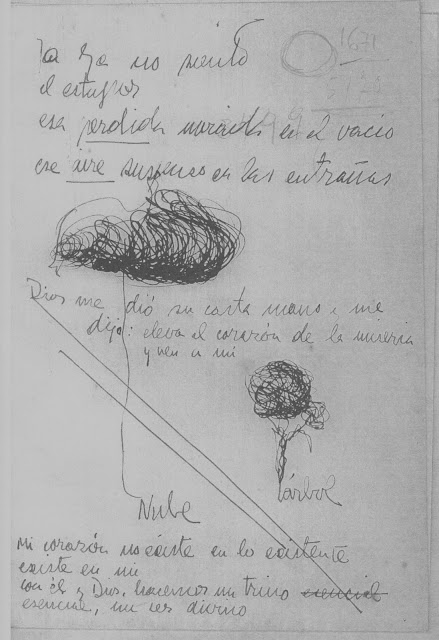 ya no siento
1671
el estupor
esa perdida mirada en el vacio
ese aire suspenso en las entrañas
Dios me dió su casta mano y me
dijo: eleva el corazón de la miseria
y ven a mi
Nube
árbol
Mi corazón no existe en lo existente
existe en mi
con él y Dios, hacemos un trino esencial
esencial, un ser divino